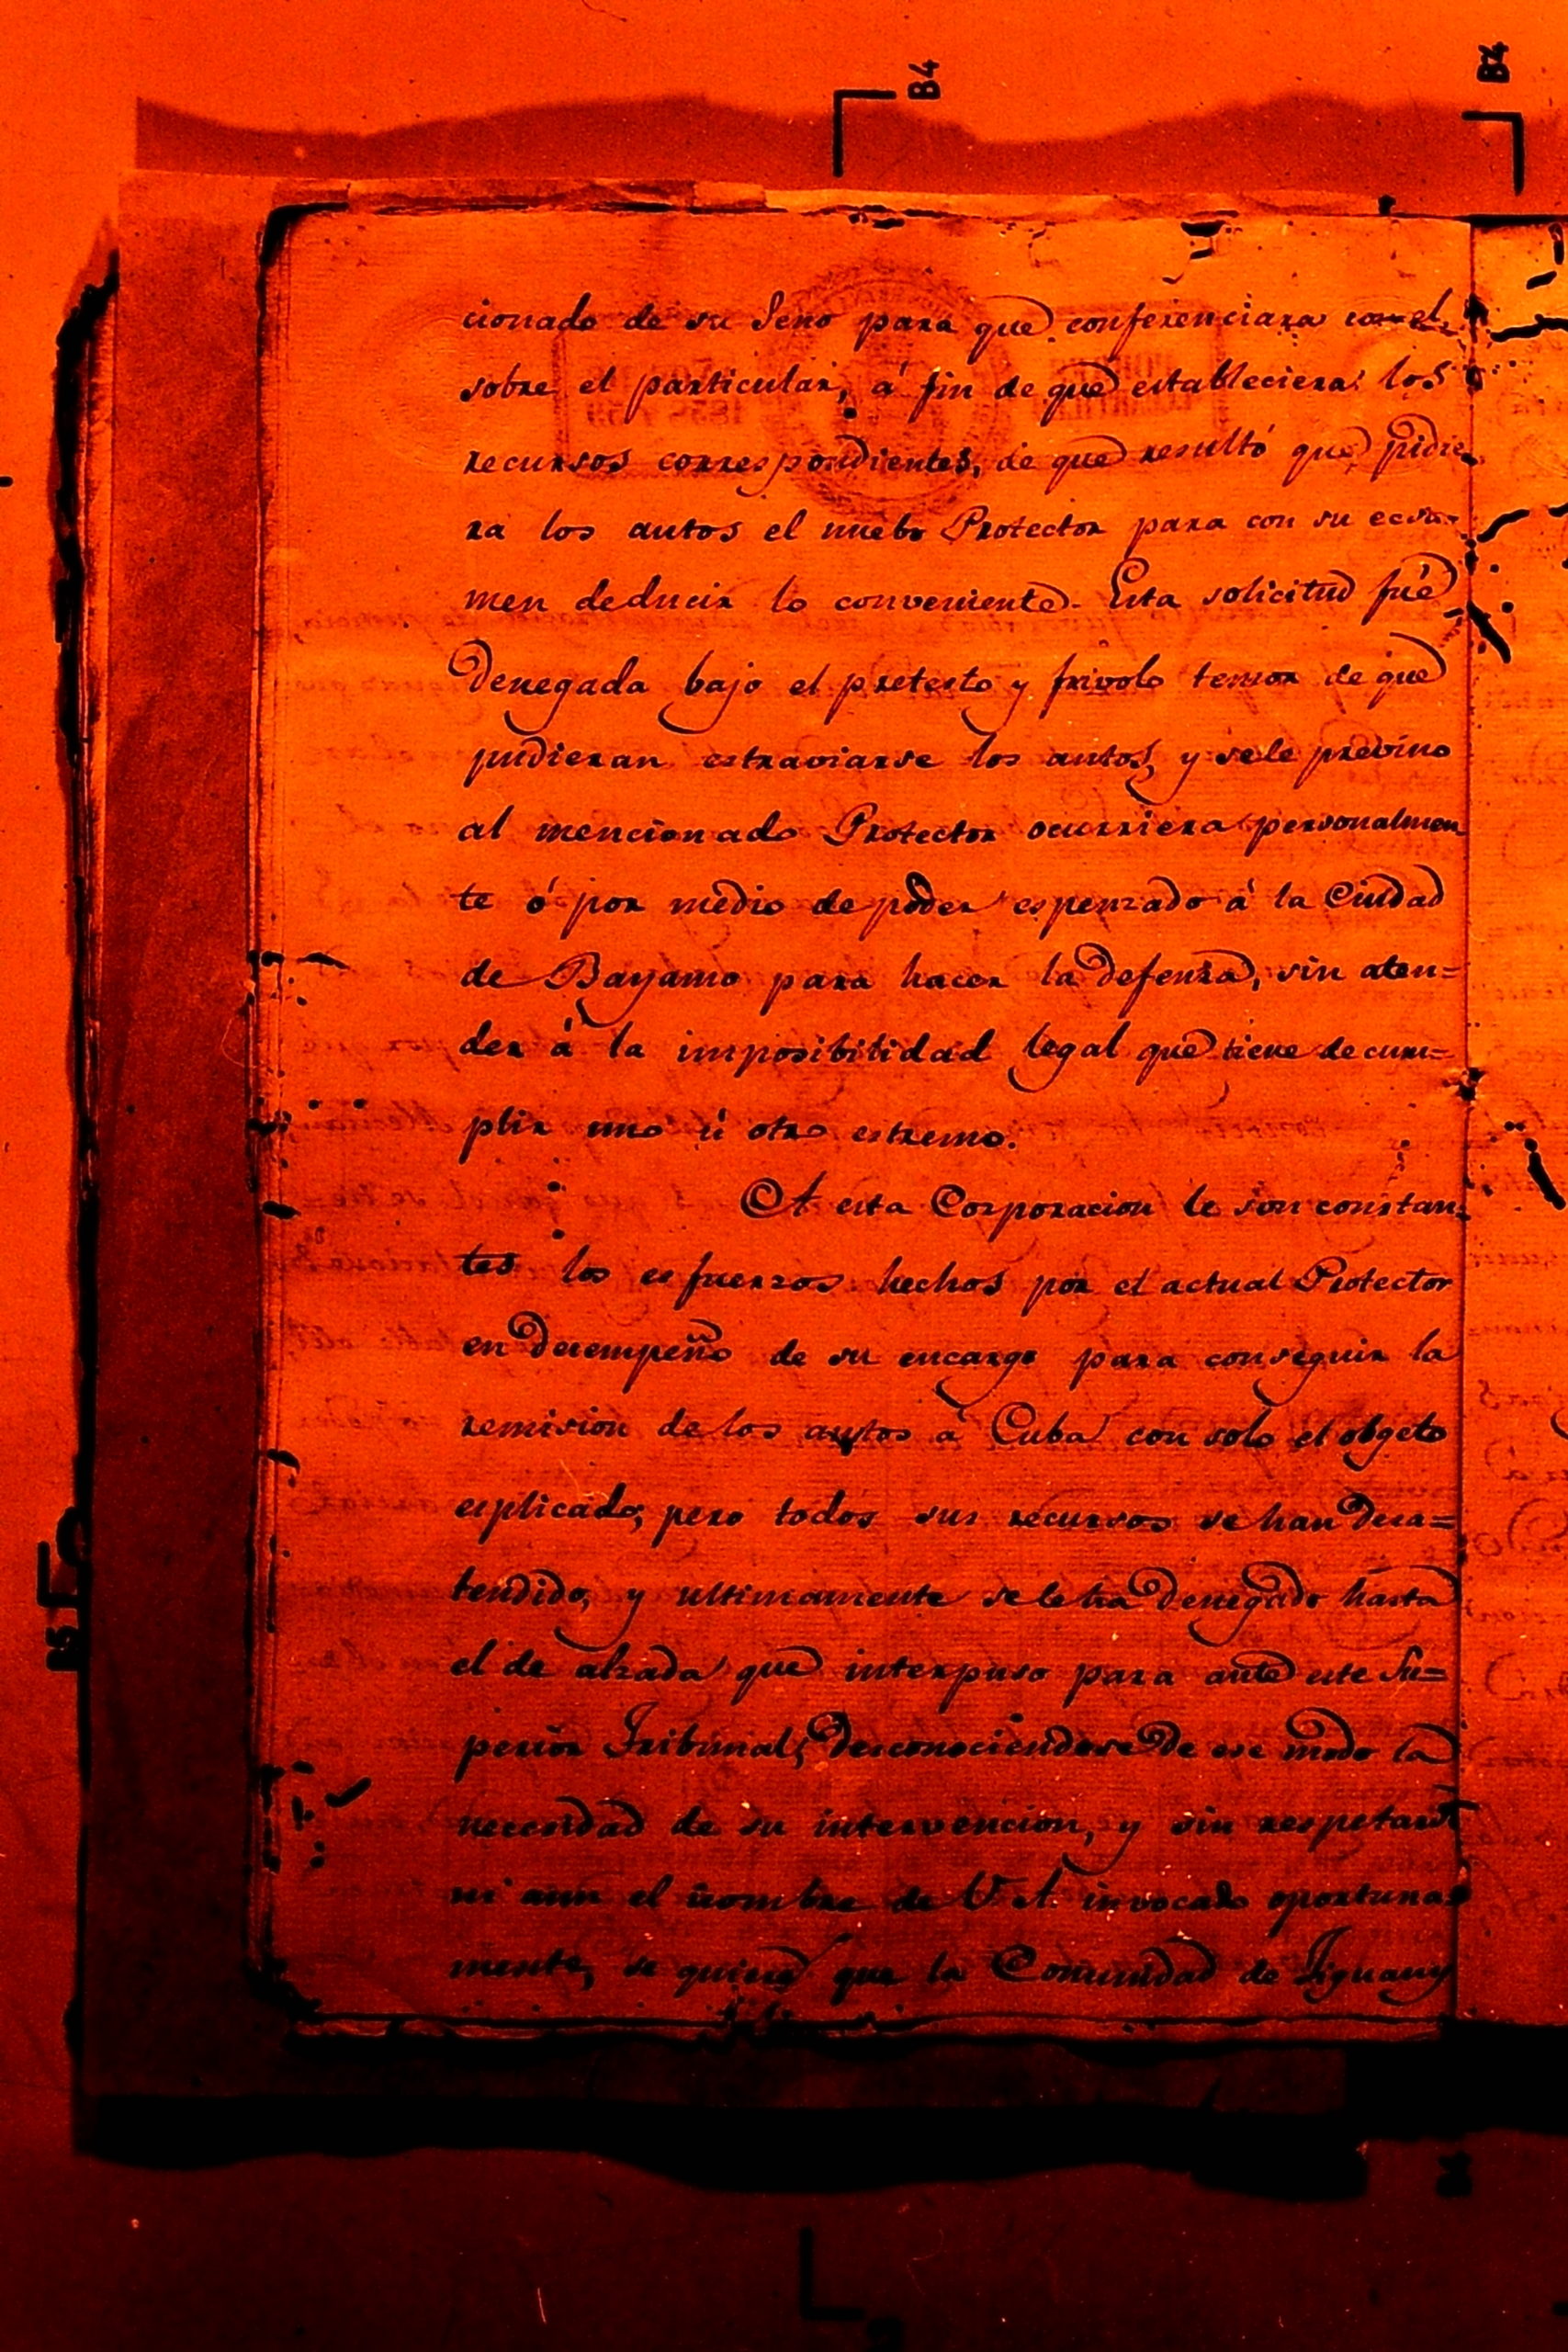 B4
B4
cionado de su Seno para que conferenciara con el
sobre el particular, á fin de que estableciera los
recursos correspondientes, de que resultó que pidie
ra los autos el nuebo Protector para con su ecsa-
men deducir lo conveniente. Esta solicitud fué
denegada bajo el pretesto y frivolo temor de que
pudieran estraviarse los autos, y se le previno
al mencionado Protector ocurriera personalmen
te ó por medio de poder espensado á la Ciudad
de Bayamo para hacer la defensa, sin aten=
der á la imposibilidad legal que tiene de cum=
plir uno ú otro estremo.
A esta Corporacion le son constan=
tes los esfuerzos hechos por el actual Protector
en desempeño de su encargo para conseguir la
remision de los autos á Cuba con solo el obgeto
esplicado; pero todos sus recursos se han desa=
tendido, y ultimamente se le ha denegado hasta
el de alzada que interpuso para ante este Su=
perior Tribunal, desconociendose de ese modo la
necesidad de su intervencion, y sin respetarse
ni aun el nombre de V. A. invocado oportuna=
mente, se quiere que la Comunidad de Jiguany
B5